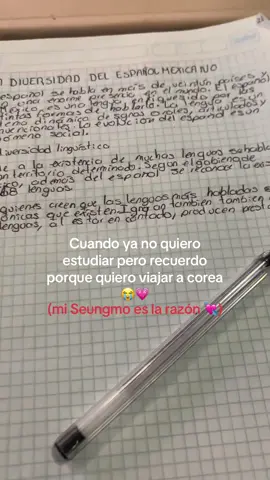 DIVERSIDAD DEL ESPAÑOL MEXICANO
español se habla en más de veintiún países
una enorme presencia en el mundo. El español
es una lengua enriquecida por las
formas de hablarlo. La lengua es un
de signos orales, articulados y
La evolución del español es un
social.
diversidad lingüística
a la existencia de muchas lenguas se habla
territorio determinado. Según el gobierno de
además del español, se reconoce la
lenguas
quienes creen que las lenguas más habladas
que existen. Ignoran también
lenguas, al estar en contacto, producen
Cuando ya no quiero
estudiar pero recuerdo
porque quiero viajar a corea
😭💗
(mi Seungmo es la razón 💘)